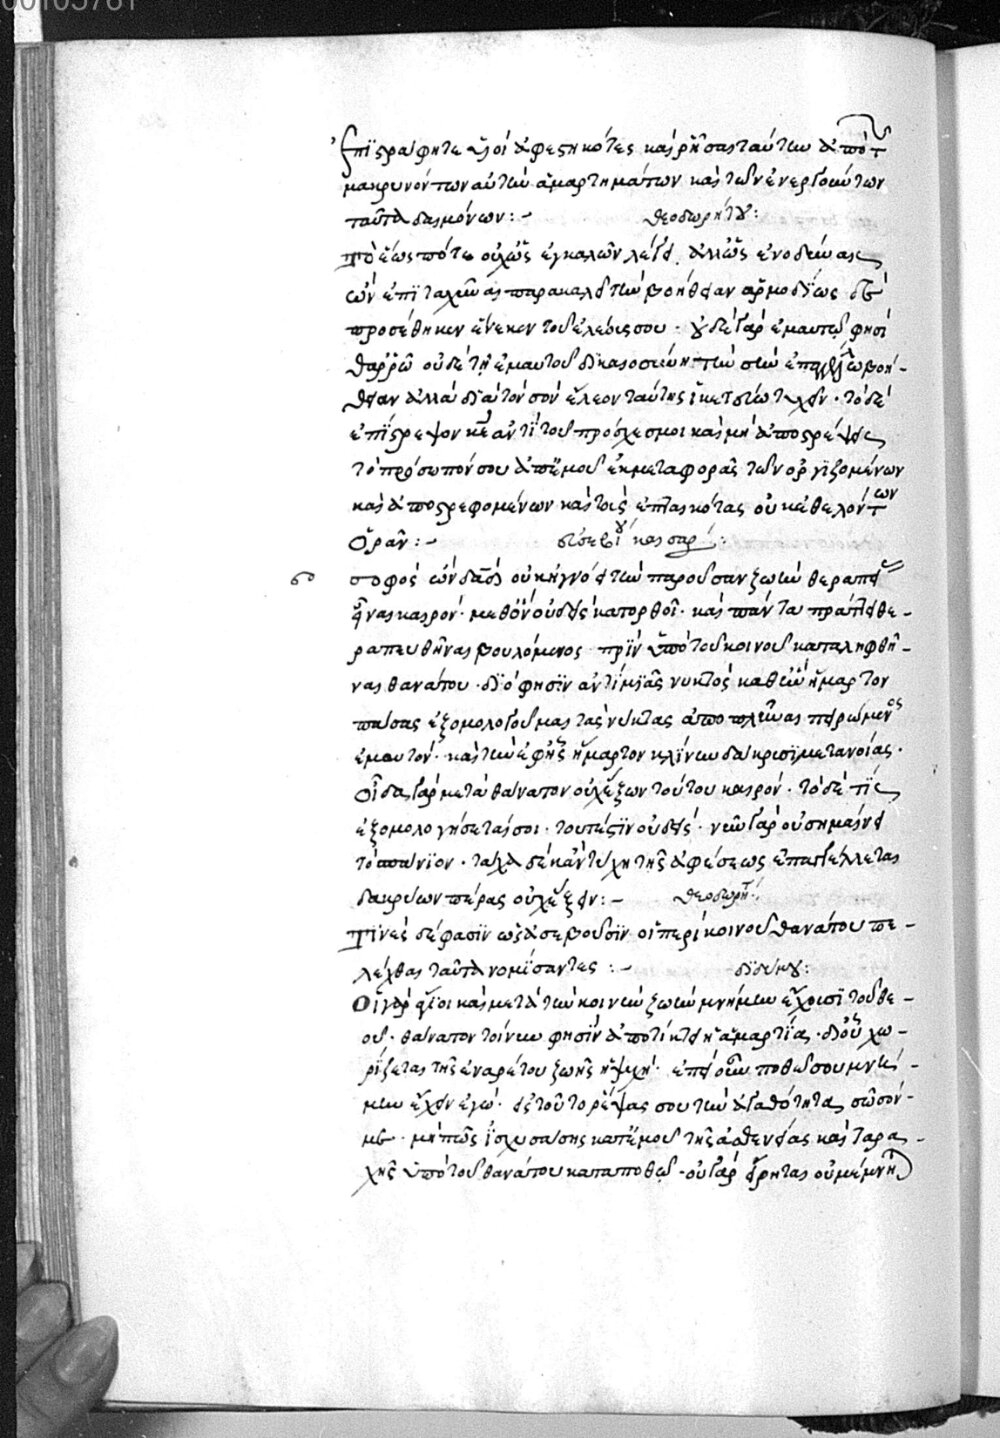 00105761
ἐπιστράφητε υἱοὶ ἀφεστηκότες καὶ ῥῆσαι ταύτην ἀπὸ τ
μακρυνόντων αὐτὴν ἁμαρτημάτων καὶ τῶν ἐνεργούντων
ταῦτα δαιμόνων :~ θεοδωρήτου:
Τὸ ἕως πότε οὐχ ὡς ἐγκαλῶν λέγει. ἀλλ' ὡς ἐν ὀδύναις
ὢν ἐπιταχῦναι παρακαλεῖ τὴν βοήθειαν ἁρμοδίως δὲ
προσέθηκεν ἕνεκεν τοῦ ἐλέους σου· οὐδὲ γὰρ ἐμαυτῷ φησὶ
θαρρῶ οὐδὲ τῇ ἐμαυτοῦ δικαιοσύνῃ τὴν σὴν βοή-
θειαν ἀλλὰ διὰ τὸν σὸν ἔλεον ταύτης ἱκετεύω τυχεῖν· τὸ δὲ
ἐπίστρεψον κε ἀντὶ τοῦ πρόσχες μοι καὶ μὴ ἀποστρέψῃς
τὸ πρόσωπόν σου ἀπ' ἐμοῦ ἐκ μεταφορᾶς τῶν ὀργιζομένων
καὶ ἀποστρεφομένων καὶ τοὺς ἐπταικότας οὐκ ἐθελόντων
ὁρᾶν :~ εὐσεβίου καισαρ:
Σοφὸς ὢν δαδ οὐκ ἠγνόει τὴν παροῦσαν ζωὴν θεραπεί
εἶναι καιρόν· μεθ' ὃν οὐδεὶς κατορθοῖ· καὶ πάντα πράττει θε-
ραπευθῆναι βουλόμενος πρὶν ὑπὸ τοῦ κοινοῦ καταληφθῆ-
ναι θανάτου· διό φησιν ἀντὶ μιᾶς νυκτὸς καθ' ἣν ἥμαρτον
πάσας ἐξομολογοῦμαι τὰς νύκτας ἀποπλῦναι πειρώμενος
ἐμαυτόν· καὶ τὴν ἐφ' ἧς ἥμαρτον κλίνην δάκρυσι μετανοίας·
Οἶδα γὰρ μετὰ θάνατον οὐχ ἕξων τούτου καιρόν· τὸ δὲ τίς
ἐξομολογήσεταί σοι· τουτέστιν οὐδείς· νῦν γὰρ οὐ σημαίνει
τὸ σπάνιον· τάχα δὲ κἂν τύχῃ τῆς ἀφέσεως ἐπαγγέλλεται
δακρύων πέρας οὐχ ἕξειν :~ θεοδωρήτ:
Τινὲς δέ φασιν ὡς ἀσεβοῦσιν οἱ περὶ κοινοῦ θανάτου πε-
λέχθαι ταῦτα νομίσαντες :~ διδύμου:
Οἱ γὰρ ἅγιοι καὶ μετὰ τὴν κοινὴν ζωὴν μνήμην ἔχουσι τοῦ θε-
οῦ· θάνατον τοίνυν φησὶν ἀποτίκτει ἡ ἁμαρτία· δι' οὗ χω-
ρίζεται τῆς ἐναρέτου ζωῆς ἡ ψυχή· ἐπεὶ οὖν ποθῶ σου μνή-
μην ἔχειν ἐγώ· εἰς τοῦτο ῥέψας σου τὴν ἀγαθότητα, σῶσόν-
με· μή πως ἰσχυσάσης κατ' ἐμοῦ τῆς ἀσθενείας καὶ ταρα-
χῆς ὑπὸ τοῦ θανάτου καταποθῶ· οὐ γὰρ εἴρηται οὐ μέμνη